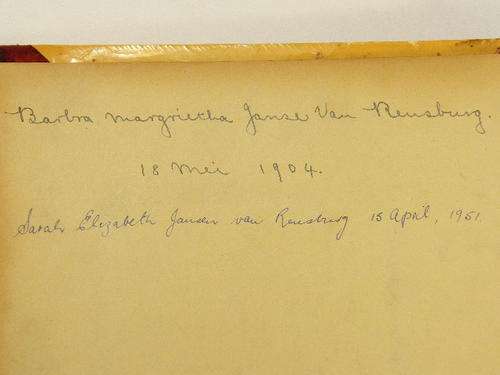 Barbra Margrietha Janse Van Rensburg.
18 Mei 1904.
Sarah Elizabeth Jansen van Rensburg 15 April, 1951.